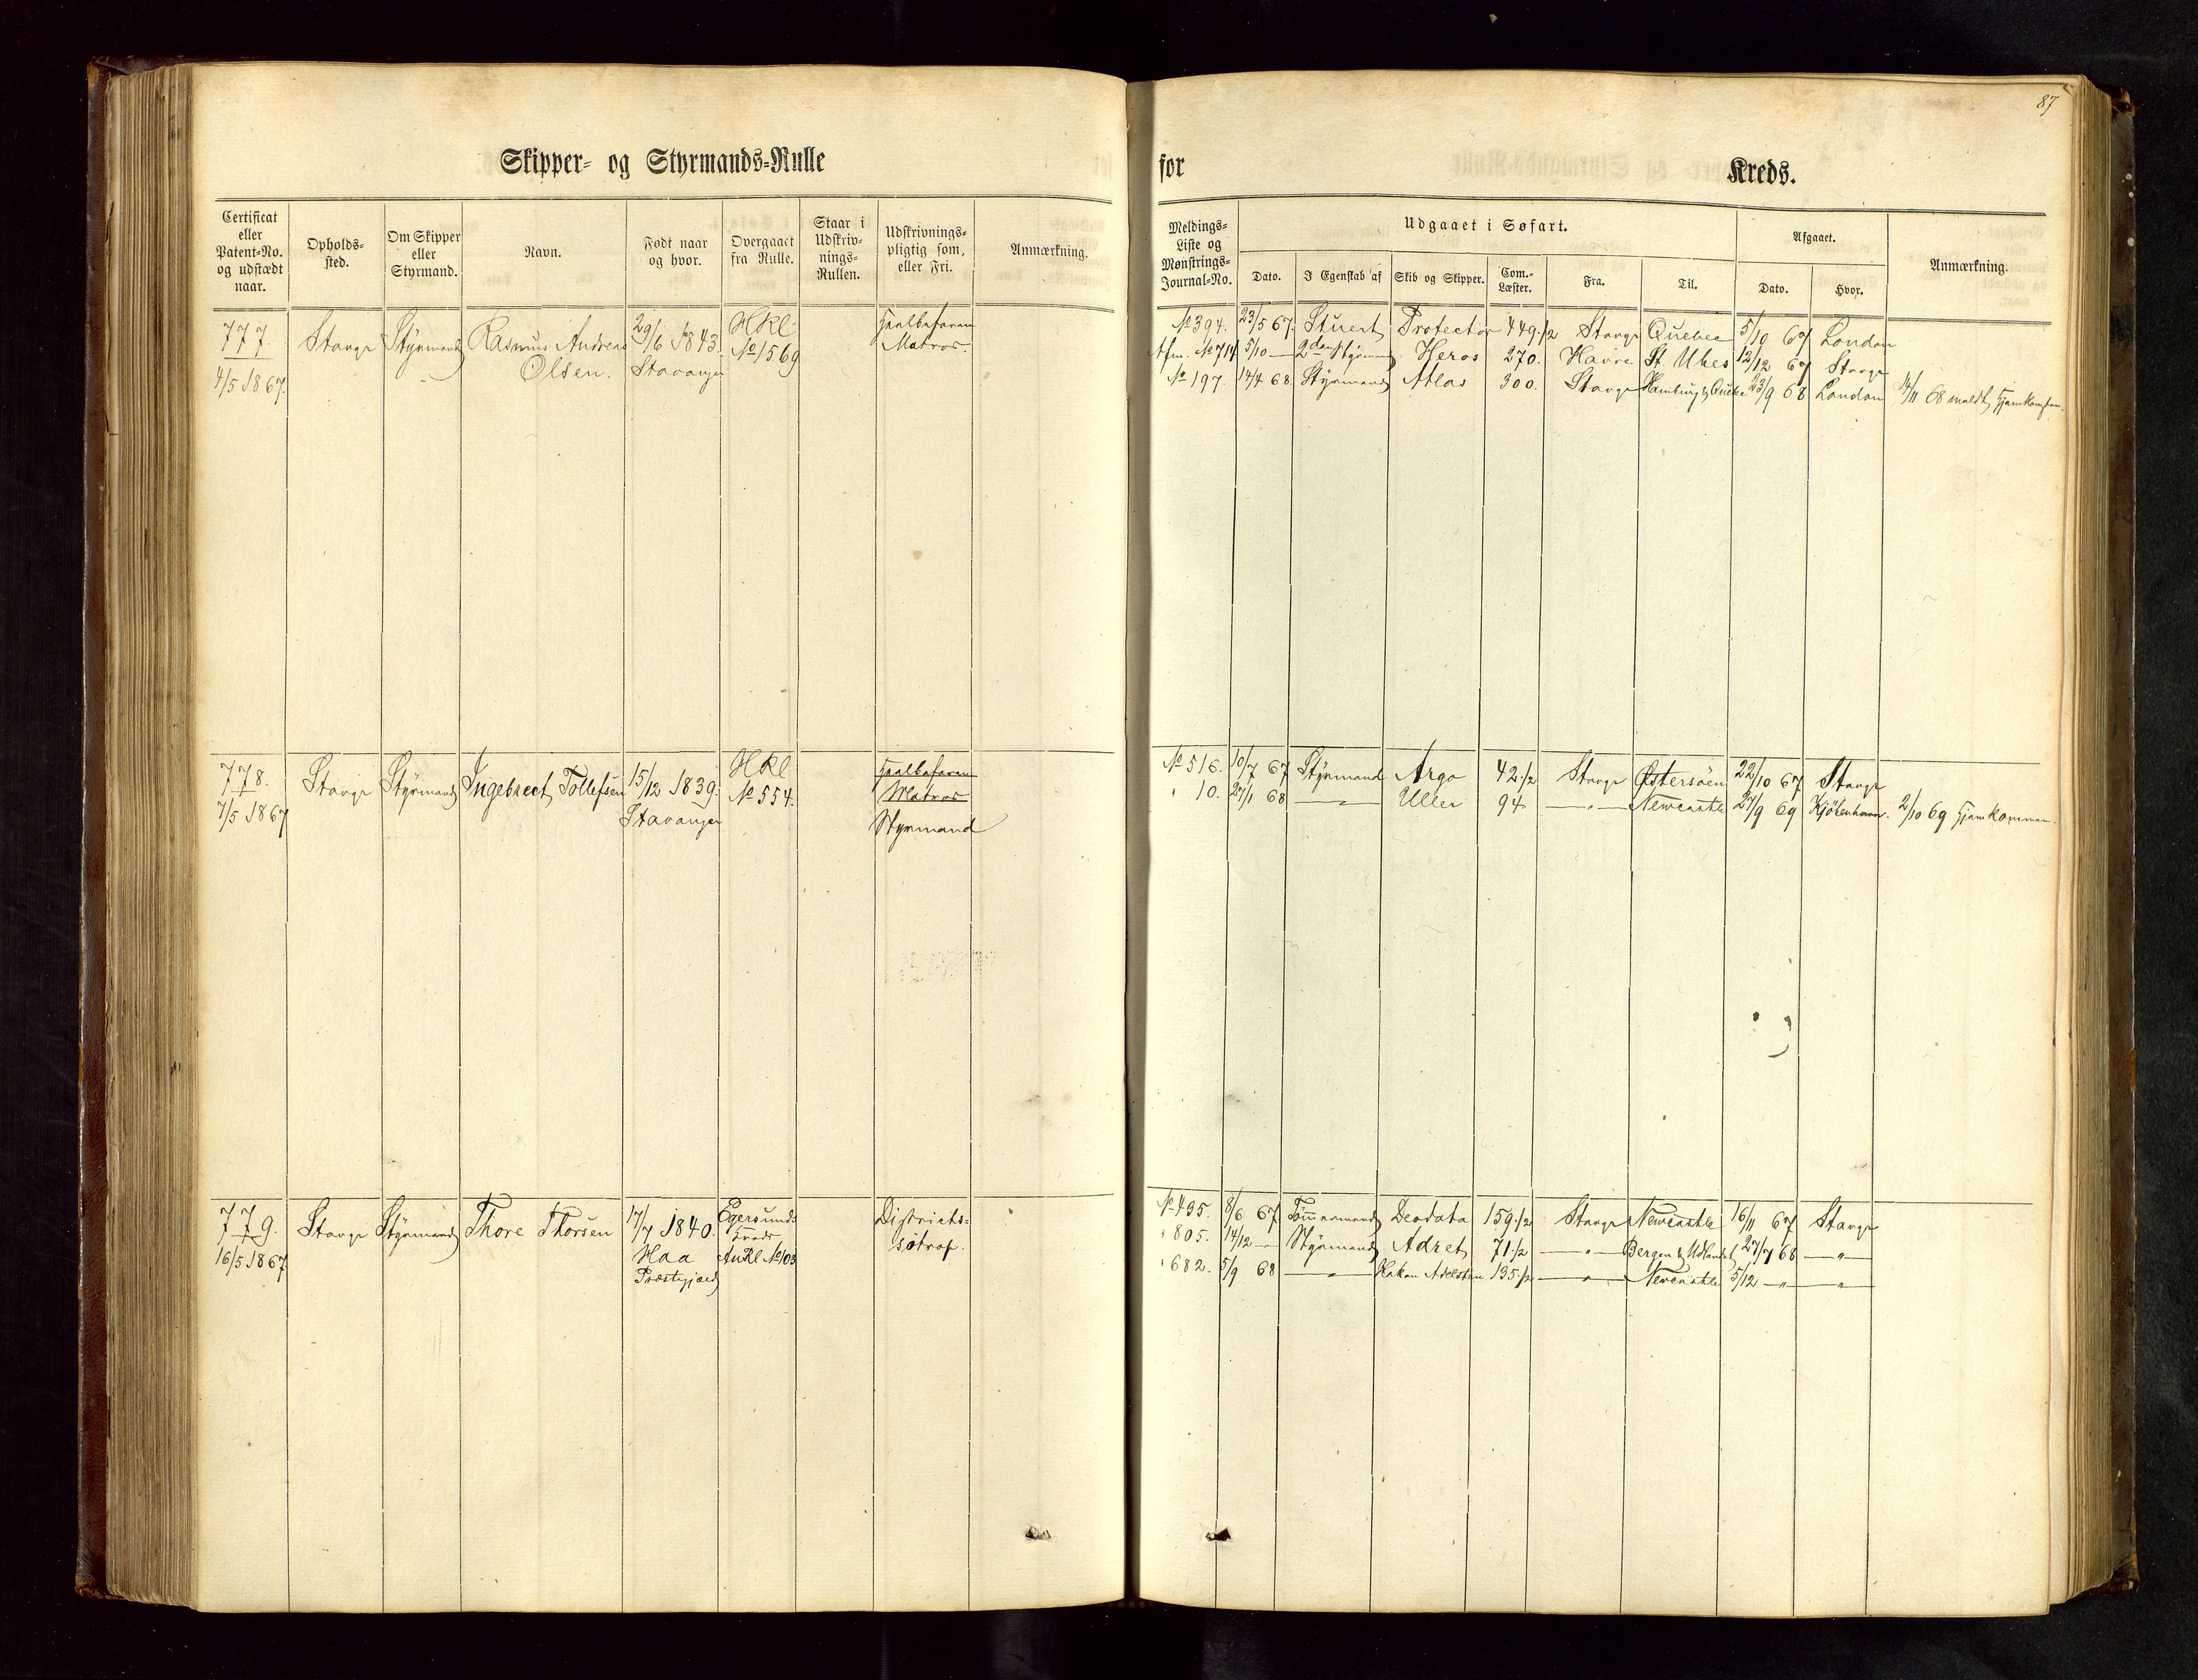 87
Skipper- og Styrmands-Rulle
for
Kreds.
Certificat eller Patent-No. og udstædt naar.
Opholds-sted.
Om Skipper eller Styrmand.
Navn.
Født naar og hvor.
Overgaaet fra Rulle.
Staar i Udskriv-nings-Rullen.
Udskrivnings-pligtig som, eller Fri.
Anmærkning.
Meldings-Liste og Mønstrings-Journal-No.
Udgaaet i Søfart.
Dato.
I Egenskab af
Skib og Skipper.
Com.-Læster.
Fra.
Til.
Afgaaet.
Dato.
Hvor.
Anmærkning.
777. Stavgr Styrmand Rasmus Andreas 29/6 1843. HRl
4/5 1867. Olsen. Stavanger No 1569
Halvbefaren
Matros.
No 394. 23/5 67. Stuert Protector 449 1/2 Stavgr Quebec 5/10 67 London
Afm. No 714 5/10 — 2den Styrmand Heros 270. Havre St. Ubes 12/12 67 Stavgr
No 197. 14/4 68. Styrmand Atlas 300. Stavgr Hamburg & Quebec 23/9 68 London 14/11 68 meldt hjemkommen.
778. Stavgr Styrmand Ingebrect Tollefsen 15/12 1839. HRl
7/5 1867 Stavanger No 554.
Halvbefaren
Matros
Styrmand
No 516. 10/7 67 Styrmand Argo 42 1/2 Stavgr Østersøen 22/10 67 Stavgr
" 10. 27/1 68 —"— Uller 94 —"— Newcastle 27/9 69 Kjøbenhavn. 2/10 69 hjemkommen.
779. Stavgr Styrmand Thore Thorsen 17/7 1840. Egersunds
16/5 1867 Haa Kreds
Præstegjæld AnRl No 103
Districts-
søtrop.
No 435. 8/6 67 Tømmermand Deodata 159 1/2 Stavgr Newcastle 16/11 67 Stavgr
" 805. 14/12 — Styrmand Adret 71 1/2 —"— Bergen & Udlandet 27/7 68 —"—
" 682. 5/9 68 —"— Hakon Adelsten 135 1/2 —"— Newcastle 5/12 —"— —"—